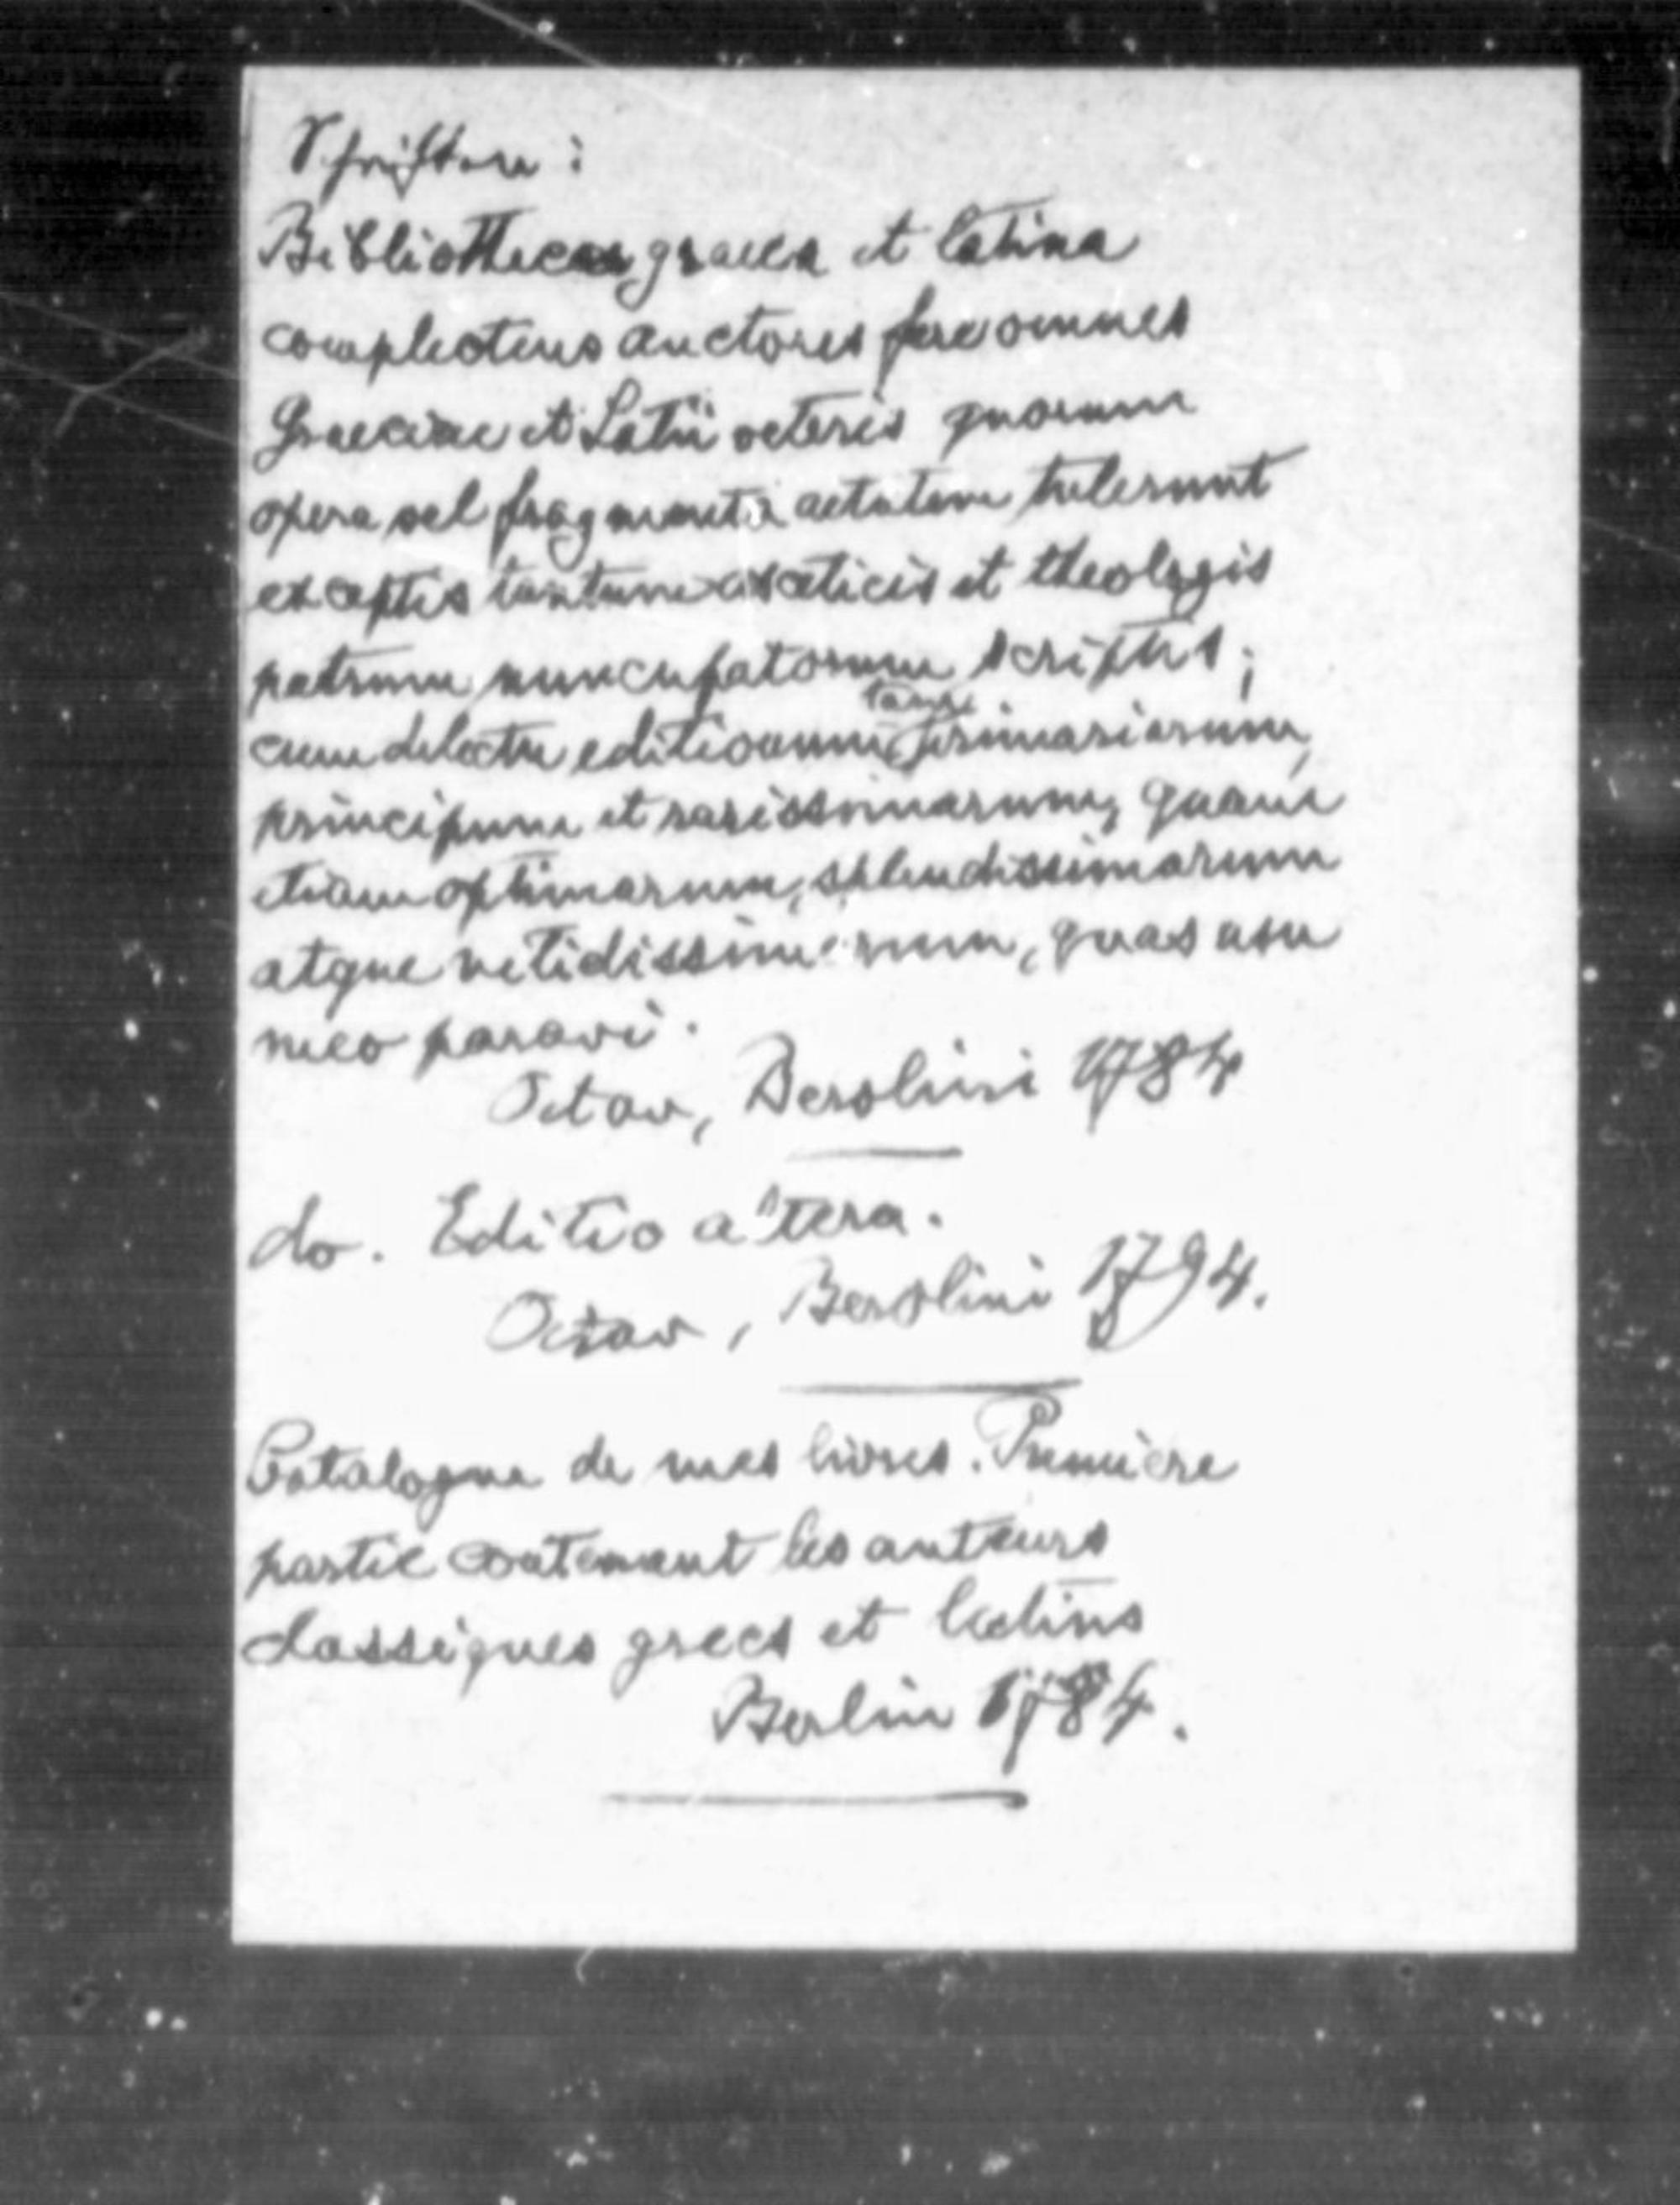 Schriften:
Bibliotheca graeca et latina
complectens auctores fere omnes
Graeciae et Latii veteris quorum
opera vel fragmenta aetatem tulerunt
exceptis tantum asceticis et theologis
patrum nuncupatorum scriptis;
cum delectu editionum tam primariarum,
principum et rarissimarum, quam
etiam optimarum, splendissimarum
atque nitidissimarum, quas usu
meo paravi.
Octav, Berolini 1784
do. Editio altera.
Octav, Berolini 1794.
Catalogue de mes livres. Première
partie contenant les auteurs
classiques grecs et latins
Berlin 1784.